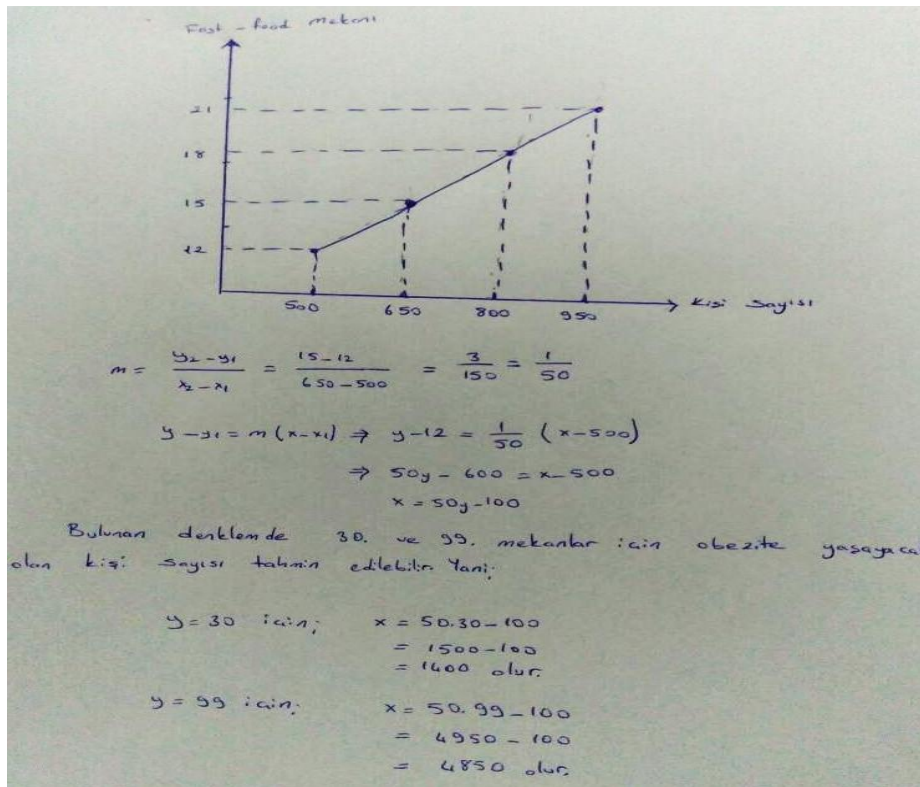 Fast-food mekanı
21
18
15
12
500 650 800 950 kişi sayısı
m = y₂-y₁ / x₂-x₁ = 15-12 / 650-500 = 3/150 = 1/50
y-y₁ = m(x-x₁) ⇒ y-12 = 1/50 (x-500)
⇒ 50y - 600 = x-500
x = 50y-100
Bulunan denklemde 30. ve 99. mekanlar için obezite yaşayaca
olan kişi sayısı tahmin edilebilir. Yani;
y = 30 için; x = 50.30-100
= 1500-100
= 1400 olur.
y = 99 için; x = 50.99-100
= 4950 - 100
= 4850 olur.